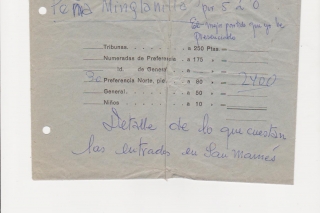 Peña Minglanilla por 5 a 0
El mejor partido que yo he
presenciado
Tribunas. a 250 Ptas
Numeradas de Preferencia a 175 "
Id. de General a "
30 Preferencia Norte, pie. a 80 " 2400
General a 50 "
Niños a 10 "
Detalle de lo que cuestan
las entradas en San Mamés